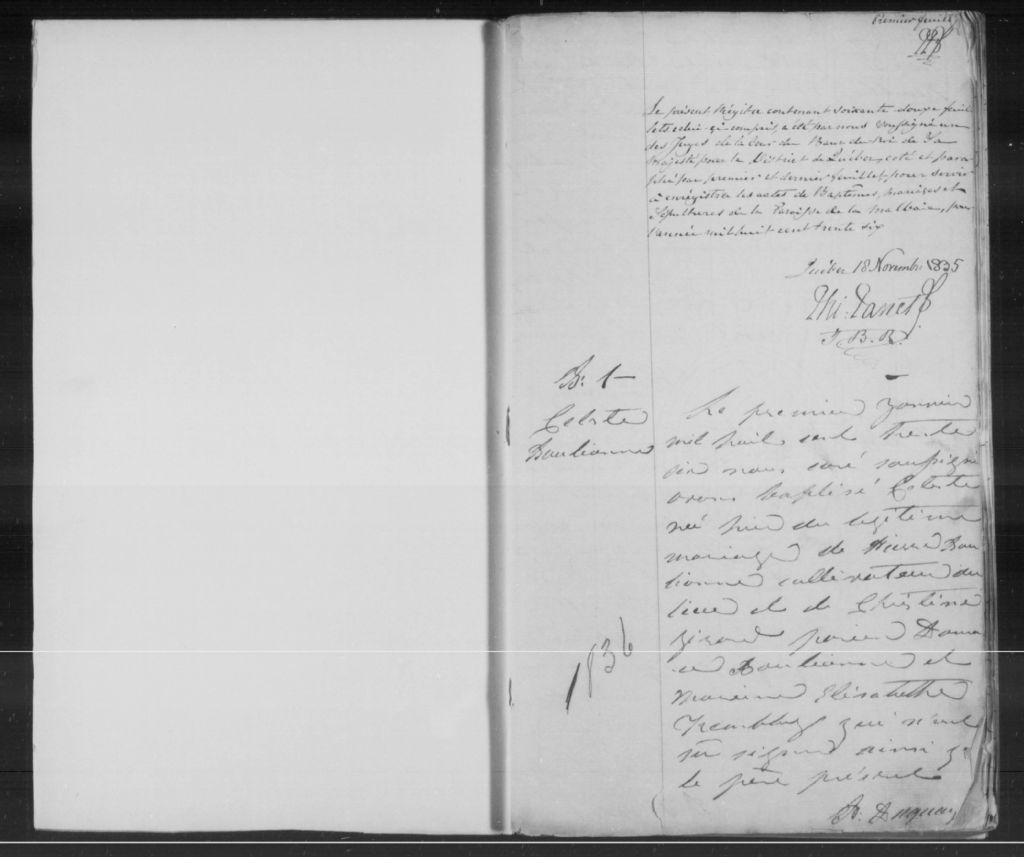 Premier feuillet
Le présent Régitre contenant soixante douze feuil
lets celui-çi compris, a été par nous soussigné un
des Juges de la Cour du Banc du Roi de Sa
Majesté pour le District de Québec, coté et para
phé par premier et dernier feuillet, pour servir
à enrégistrer les actes de Baptêmes, mariages et
Sépultures de la Paroisse de la Malbaie, pour
l'année mil huit cent trente six
Québec 18 Novembre 1835
J.B.R.
B: 1
Celeste
Boulianne
Le premier Janvier
mil huit cent trente
six nous curé soussigné
avons baptisé Celeste
née hier du légitime
mariage de Pierre Bou
lionne cultivateur du
lieu et de Christine
Girard parein Dama
ce Boulianne et
Mareine Elisabethe
Tremblay qui n'ont
su signer ainsi q.
le père présent
1836